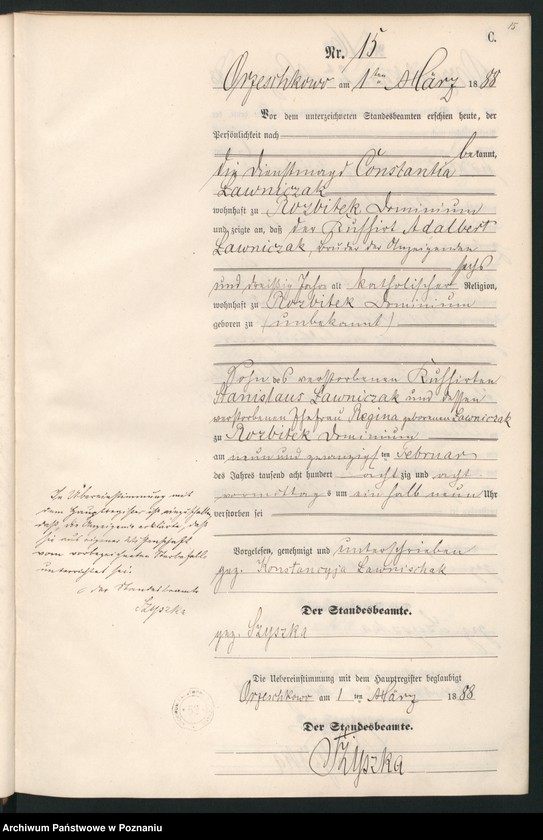 15
C.
Nr. 15
Orzeschkowo am 1ten März 1888
Vor dem unterzeichneten Standesbeamten erschien heute, der
Persönlichkeit nach
bekannt,
die Dienstmagd Constantia
Lawniczak
wohnhaft zu Rozbitek Dominium
und zeigte an, daß der Kuhhirt Adalbert
Lawniczak, Bruder der Anzeigenden
sechs
und dreißig Jahre alt katholischer Religion,
wohnhaft zu Rozbitek Dominium
geboren zu (unbekannt)
Sohn des verstorbenen Kuhhirten
Stanislaus Lawniczak und dessen
verstorbenen Ehefrau Regina geborenen Lawniczak
zu Rozbitek Dominium
am neun und zwanzigsten Februar
des Jahres tausend acht hundert achtzig und acht
vormittags um ein halb neun Uhr
verstorben sei
In Übereinstimmung mit
dem Hauptregister
daß die Anzeigende erklärte, daß
sie aus eigener Wissenschaft
vom vorbezeichneten Sterbefalle
unterrichtet sei.
der Standesbeamte
Szyszka
Vorgelesen, genehmigt und unterschrieben
gez. Konstancyja Lawnischak
Der Standesbeamte.
gez. Szyszka
Die Uebereinstimmung mit dem Hauptregister beglaubigt
Orzeschkowo am 1ten März 1888
Der Standesbeamte.
Szyszka
Archiwum Państwowe w Poznaniu